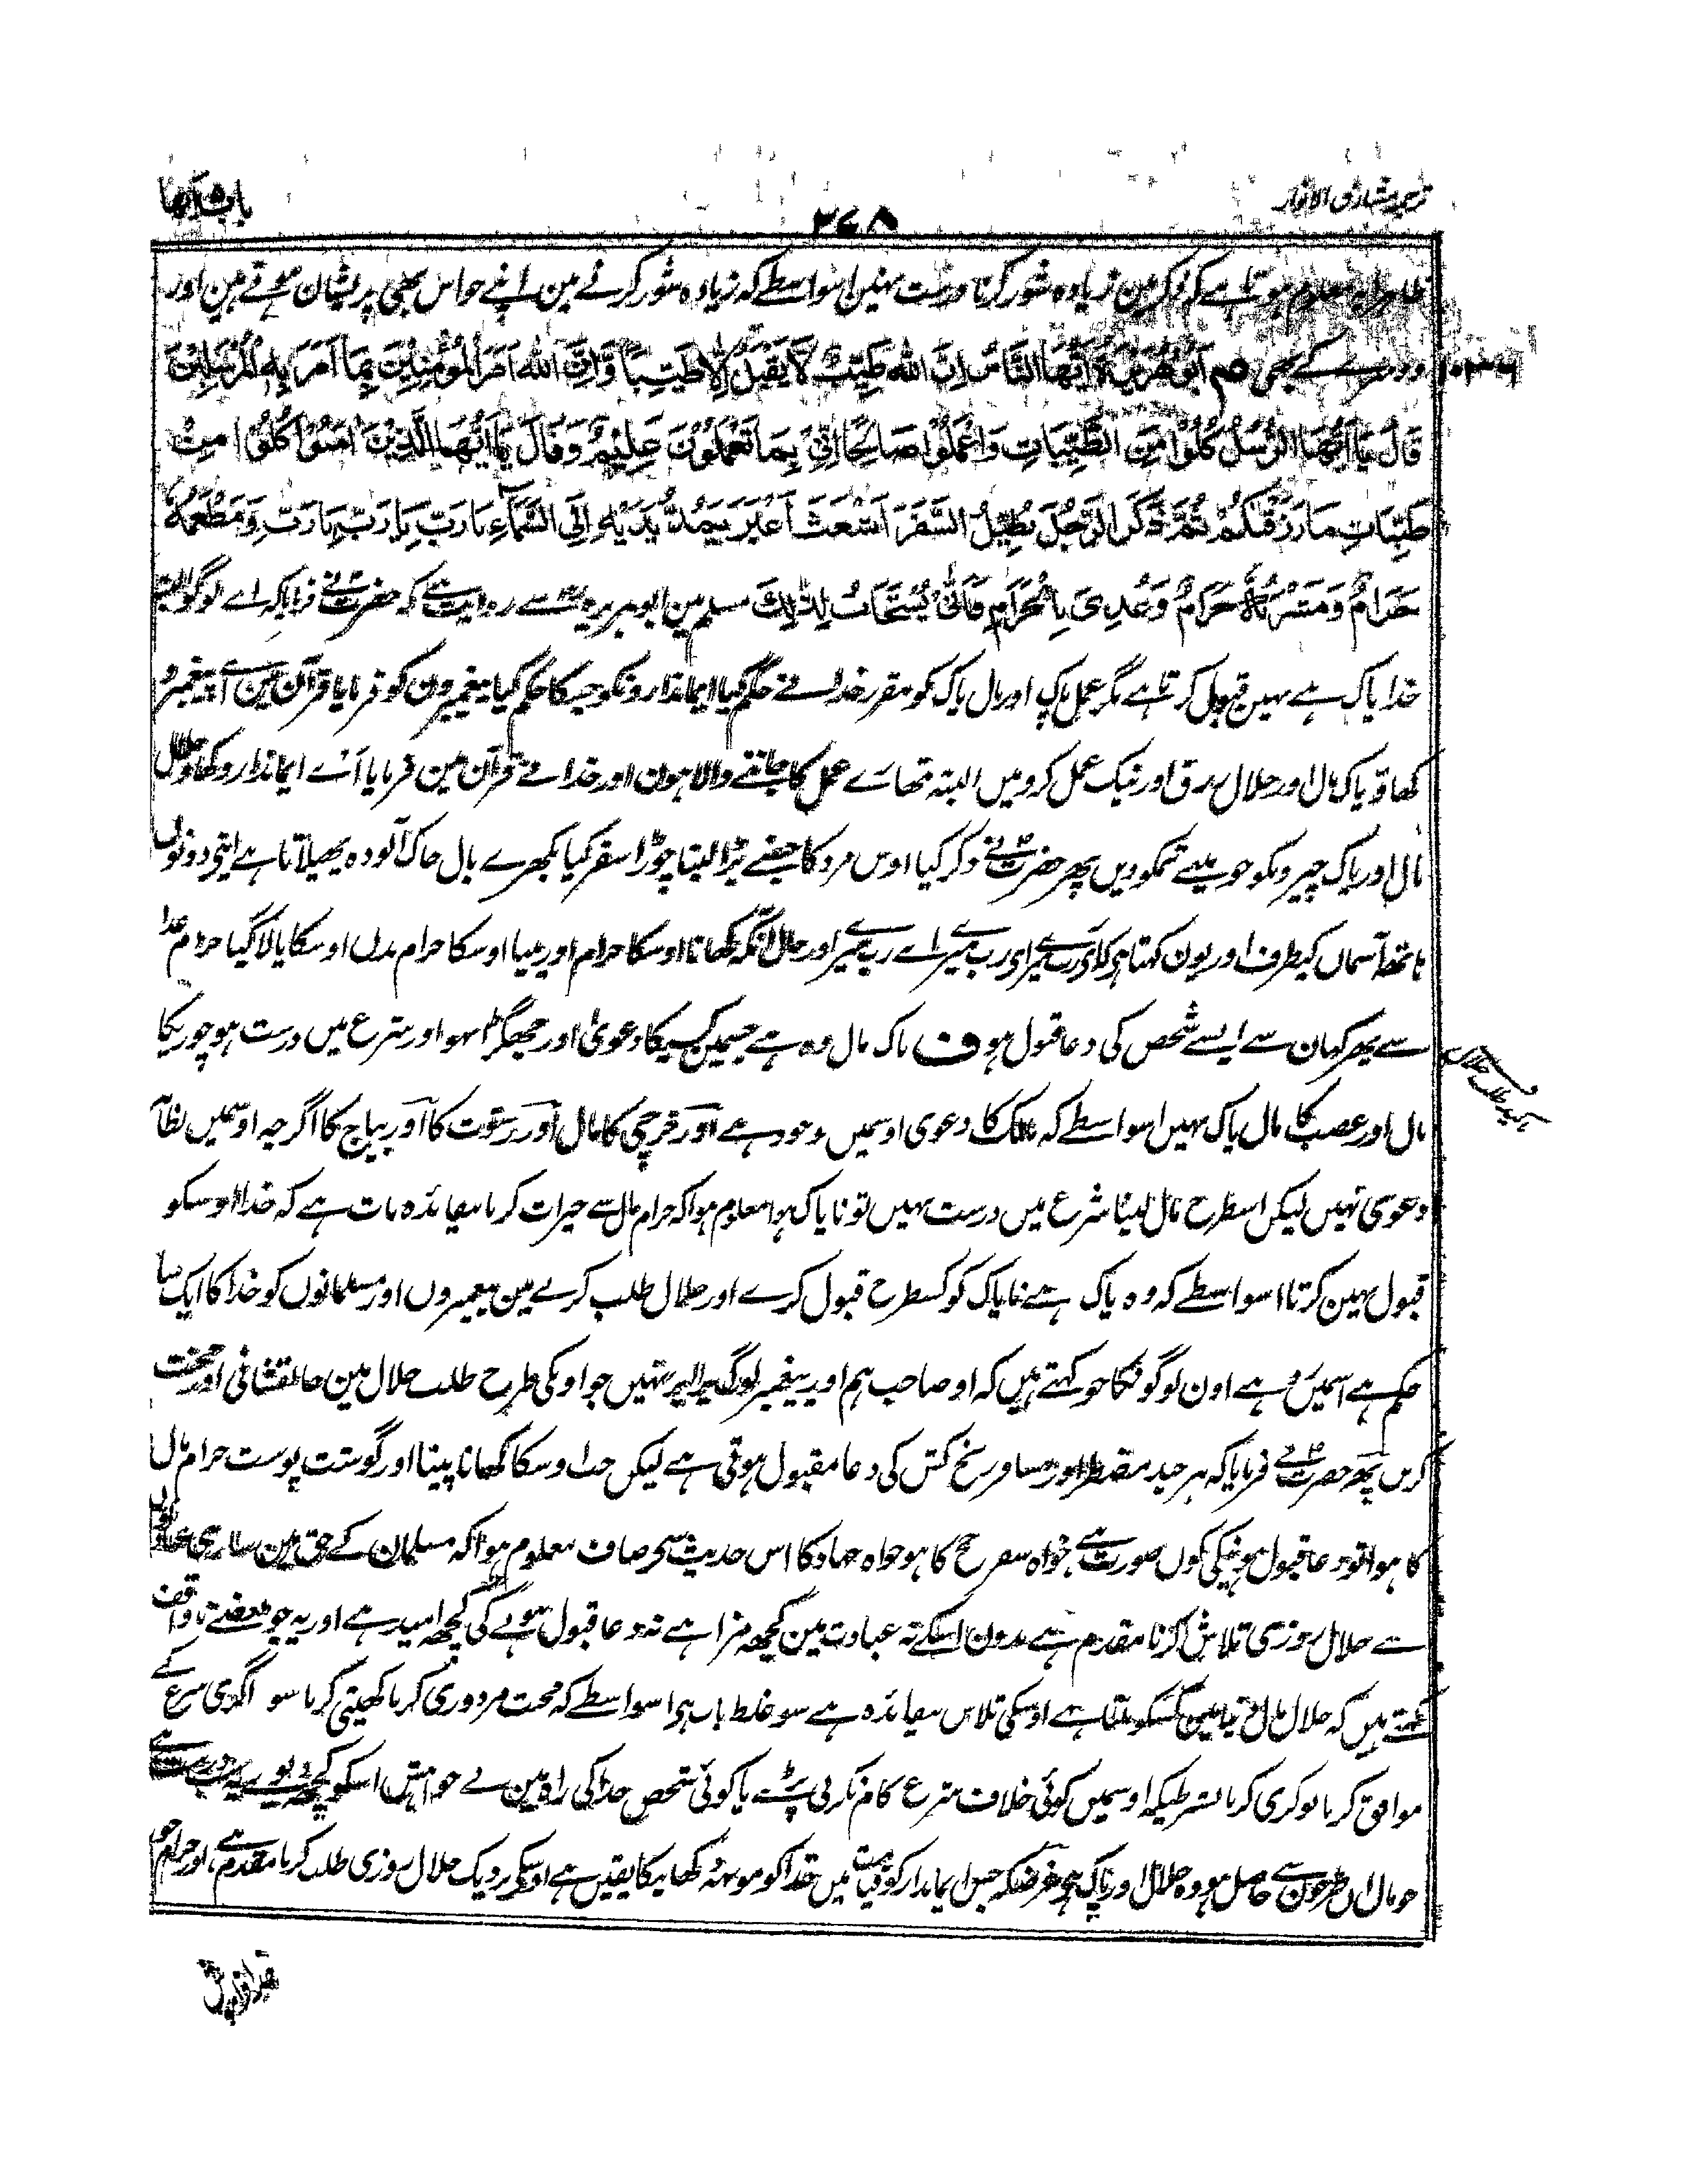 ترجمہ مشارق الانوار
۲۷۸
باب آٹھوا
معلوم ہوتا ہے کہ ذکر مین زیادہ شور کرنا درست نہین اسواسطے کہ زیادہ شور کرنے مین اپنے حواس بھی پریشان ہوتے ہین اور
دوسرے کے بھی م اَبُوْهُرَيْرَةَ اَيُّهَا النَّاسُ اِنَّ اللهَ طَيِّبٌ لَا يَقْبَلُ اِلَّا طَيِّبًا وَّاِنَّ اللهَ اَمَرَ الْمُؤْمِنِيْنَ بِمَا اَمَرَ بِهِ الْمُرْسَلِيْنَ
قَالَ يَا اَيُّهَا الرُّسُلُ كُلُوْا مِنَ الطَّيِّبَاتِ وَاعْمَلُوْا صَالِحًا اِنِّيْ بِمَا تَعْمَلُوْنَ عَلِيْمٌ وَقَالَ يَا اَيُّهَا الَّذِيْنَ اٰمَنُوْا كُلُوْا مِنْ
طَيِّبَاتِ مَا رَزَقْنٰكُمْ ثُمَّ ذَكَرَ الرَّجُلَ يُطِيْلُ السَّفَرَ اَشْعَثَ اَغْبَرَ يَمُدُّ يَدَيْهِ اِلَى السَّمَآءِ يَا رَبِّ يَا رَبِّ يَا رَبِّ وَمَطْعَمُهٗ
حَرَامٌ وَمَشْرَبُهٗ حَرَامٌ وَغُذِيَ بِالْحَرَامِ فَاَنّٰى يُسْتَجَابُ لِذٰلِكَ مسلم مین ابو ہریرہ سے روایت ہے کہ حضرت نے فرمایا کہ اے لوگو البتہ
خدا پاک ہے نہین قبول کرتا ہے مگر عمل پاک اور مال پاک کو مقرر خدا نے حکم کیا ایماندارونکو جسکا حکم کیا پیغمبرون کو فرمایا قرآن مین اے پیغمبرو
کھاؤ پاک مال اور حلال رزق اور نیک عمل کرو میں البتہ تمھارے عمل کا جاننے والا ہون اور خدا نے قرآن مین فرمایا اے ایماندارو کھاؤ حلال
مال اور پاک چیرونکو جو مینے تمکو دیں پھر حضرت نے ذکر کیا اوس مرد کا جسنے بڑا لنبا چوڑا سفر کیا بکھرے بال خاک آلودہ پھیلاتا ہے اپنی دونوں
ہاتھ آسمان کیطرف اور یون کہتا ہے کہ اے رب میرے اے رب میرے اے رب میرے اور حال آنکہ کھانا اوسکا حرام اور پینا اوسکا حرام بدن اوسکا پالا گیا حرام غذا
سے پھر کہان سے ایسے شخص کی دعا قبول ہو ف پاک مال وہ ہے جسمین کسیکا دعویٰ اور جھگڑا نہو اور شرع میں درست ہو چوریکا
مال اور غصب کا مال پاک نہیں اسواسطے کہ مالک کا دعوی اوسمیں موجود ہے اور خرچی کا مال اور رشوت کا اور بیاج کا اگرچہ اوسمیں بظاہر
دعوی نہیں لیکن اسطرح مال لینا شرع میں درست نہیں تو ناپاک ہوا معلوم ہوا کہ حرام مال سے خیرات کرنا بیفائدہ بات ہے کہ خدا اوسکو
قبول نہین کرتا اسواسطے کہ وہ پاک ہے ناپاک کو کسطرح قبول کرے اور حلال طلب کرنے مین پیغمبروں اور مسلمانوں کو خدا کا ایک سا
حکم ہے اسمیں رد ہے اون لوگونکا جو کہتے ہیں کہ او صاحب ہم اور پیغمبر لوگ برابر نہیں جو اونکی طرح طلب حلال مین جانفشانی اور محنت
کریں پھر حضرت نے فرمایا کہ ہر چند مضطر اور مسافر رنج کش کی دعا مقبول ہوتی ہے لیکن جب اوسکا کھانا پینا اور گوشت پوست حرام مال
کا ہوا تو دعا قبول ہونیکی کون صورت ہے خواہ سفر حج کا ہو خواہ جہاد کا اس حدیث سے صاف معلوم ہوا کہ مسلمان کے حق مین ساری عبادتوں
سے حلال روزی تلاش کرنا مقدم ہے بدون اسکے نہ عبادت مین کچھ مزا ہے نہ دعا قبول ہونے کی کچھ امید ہے اور یہ جو بعضے ناواقف
کہتے ہیں کہ حلال مال دنیا مین کسکو ملتا ہے اوسکی تلاش بیفائدہ ہے سو غلط بات ہے اسواسطے کہ محنت مزدوری کرنا کھیتی کرنا سوداگری شرع کے
موافق کرنا نوکری کرنا بشرطیکہ اوسمیں کوئی خلاف شرع کام نکرنی پڑے یا کوئی شخص خدا کی راہ مین بے خواہش اسکو کچھ دیوے یہ سب درست ہے
جو مال ان طرحون سے حاصل ہو وہ حلال اور پاک ہے غرضکہ جس ایماندار کو قیامت میں خدا کو مونہہ دکھانیکا یقین ہے اوسکے نزدیک حلال روزی طلب کرنا مقدم ہے اور حرام جو